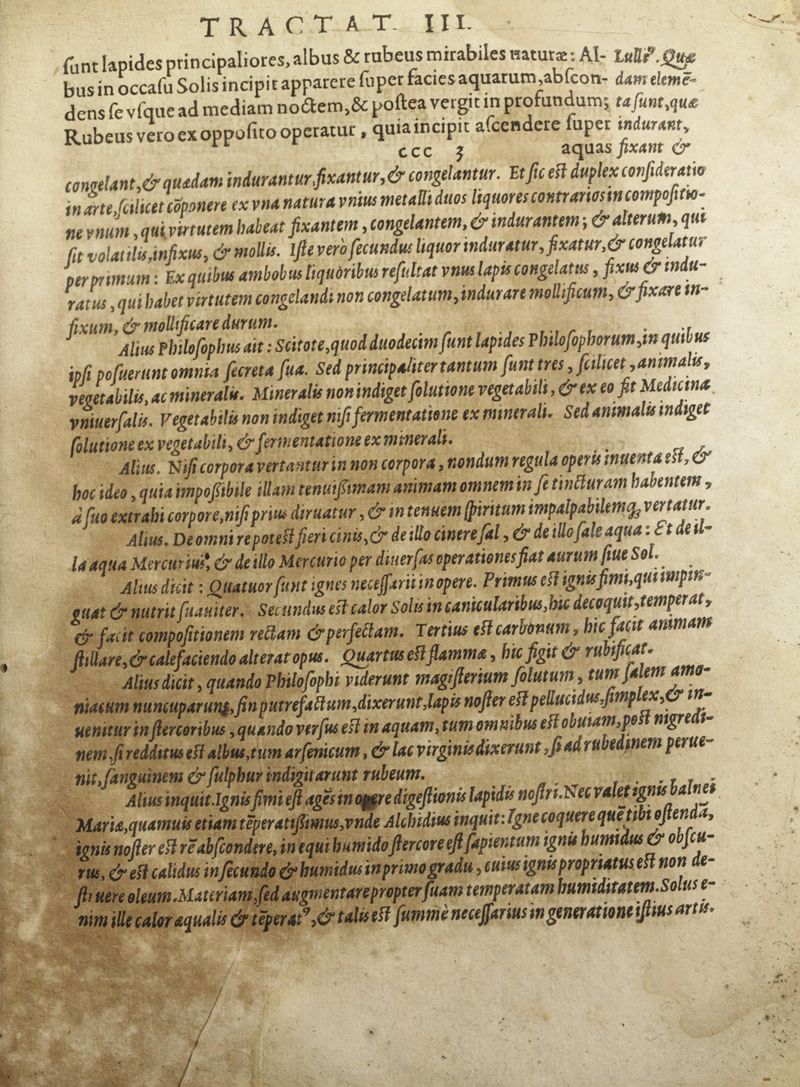 TRACTAT. III.
ſunt lapides principaliores, albus & rubeus mirabiles naturæ: Al-
bus in occaſu Solis incipit apparere ſuper facies aquarum, abſcon-
dens ſe vſque ad mediam noctem, & poſtea vergit in profundum;
Rubeus vero ex oppoſito operatur, quia incipit aſcendere ſuper
ccc 3 aquas
Lullꝰ. Quæ
dam elemē-
ta ſunt, quæ
indurant,
fixant &
congelant, & quædam indurantur, fixantur, & congelantur. Et ſic eſt duplex conſideratio
in arte, ſcilicet cōponere ex vna natura vnius metalli duos liquores contrarios in compoſitio-
ne vnum, qui virtutem habeat fixantem, congelantem, & indurantem; & alterum, qui
ſit volatilis, infixus, & mollis. Iſte verò ſecundus liquor induratur, fixatur, & congelatur
per primum: Ex quibus ambobus liquoribus reſultat vnus lapis congelatus, fixus & indu-
ratus, qui habet virtutem congelandi non congelatum, indurare mollificum, & fixare in-
fixum, & mollificare durum.
Alius Philoſophus ait: Scitote, quod duodecim ſunt lapides Philoſophorum, in quibus
ipſi poſuerunt omnia ſecreta ſua. Sed principaliter tantum ſunt tres, ſcilicet, animalis,
vegetabilis, ac mineralis. Mineralis non indiget ſolutione vegetabili, & ex eo fit Medicina
vniuerſalis. Vegetabilis non indiget niſi fermentatione ex minerali. Sed animalis indiget
ſolutione ex vegetabili, & fermentatione ex minerali.
Alius. Niſi corpora vertantur in non corpora, nondum regula operis inuenta eſt, &
hoc ideo, quia impoßibile illam tenuißimam animam omnem in ſe tincturam habentem,
à ſuo extrahi corpore, niſi prius diruatur, & in tenuem ſpiritum impalpabilemq; vertatur.
Alius. De omni re poteſt fieri cinis, & de illo cinere ſal, & de illo ſale aqua: Et de il-
la aqua Mercurius, & de illo Mercurio per diuerſas operationes fiat aurum ſiue Sol.
Alius dicit: Quatuor ſunt ignes neceſſarii in opere. Primus eſt ignis fimi, qui impin-
guat & nutrit ſuauiter. Secundus eſt calor Solis in canicularibus, hic decoquit, temperat,
& facit compoſitionem rectam & perfectam. Tertius eſt carbonum, hic facit animam
ſtillare, & calefaciendo alterat opus. Quartus eſt flammæ, hic figit & rubificat.
Alius dicit, quando Philoſophi viderunt magiſterium ſolutum, tum ſalem amo-
niacum nuncuparunt, ſin putrefactum, dixerunt, lapis noſter eſt pellucidus, ſimplex, & in-
uenitur in ſtercoribus, quando verſus eſt in aquam, tum omnibus eſt obuiam, poſt nigredi-
nem, ſi redditus eſt albus, tum arſenicum, & lac virginis dixerunt, ſi ad rubedinem perue-
nit, ſanguinem & ſulphur indigitarunt rubeum.
Alius inquit. Ignis fimi eſt agēs in opere digeſtionis lapidis noſtri. Nec valet ignis balnei
Mariæ, quamuis etiam tēperatißimus, vnde Alchidius inquit: Igne coquere quē tibi oſtendā,
ignis noſter eſt rē abſcondere, in equi humido ſtercore eſt ſapientum ignis humidus & obſcu-
rus, & eſt calidus in ſecundo & humidus in primo gradu, cuius ignis propriatus eſt non de-
ſtruere oleum. Materiam, ſed augmentare propter ſuam temperatam humiditatem. Solus e-
nim ille calor æqualis & tēperatꝰ, & talis eſt ſummè neceſſarius in generatione iſtius artis.